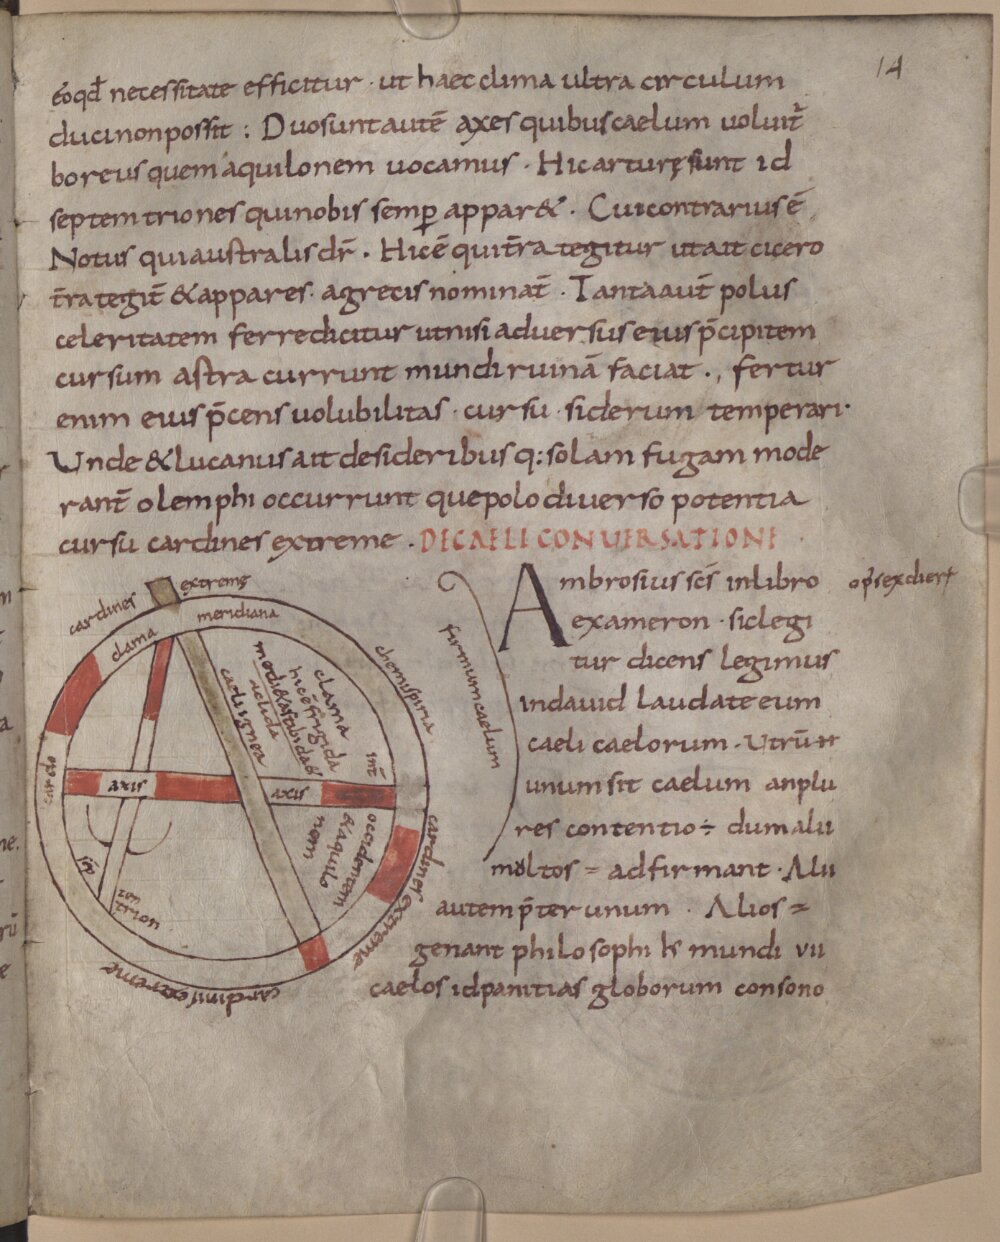 14
eoqđ necessitate efficitur · ut haec clima ultra circulum
duci non possit : Duo sunt autē axes quibus caelum uoluit̄
boreus quem aquilonem uocamus · Hic arturę sunt id
septemtriones qui nobis semꝑ appar& · Cui contrarius ē
Notus qui australis dr̄ · Hic ē qui t̄ra tegitur ut ait cicero
t̄ra tegit̄ & appares · agrecis nominat̄ · Tanta aut̄ polus
celeritatem ferre dicitur ut nisi aduersus eius p̄cipitem
cursum astra currunt mundi ruinā faciat ·, fertur
enim eius p̄cens uolubilitas · cursu · siderum temperari·
Unde & lucanus ait de sideribus q: solam fugam mode
rant̄ olemphi occurrunt que polo diuerso potentia
cursu cardines extreme · DE CAELI CONUERSATIONE
Ambrosius sc̄s in libro
exameron · sic legi
tur dicens legimus
in dauid laudate eum
caeli caelorum · Utrū
unum sit caelum an plu
res contentio ÷ dum alii
moltos = adfirmant · Alii
autem p̄ter unum · Alios =
genant philosophi mundi VII
caelos id panitias globorum consono
firmum caelum
cardines extreme
meridiana
clama
chemisperia
clama
hic ē frigida
caelignea
cardo
axis
axis
int̄
occidentem
& aquilo
nem
sep
ten
trion
cardines extreme
cardinis extreme